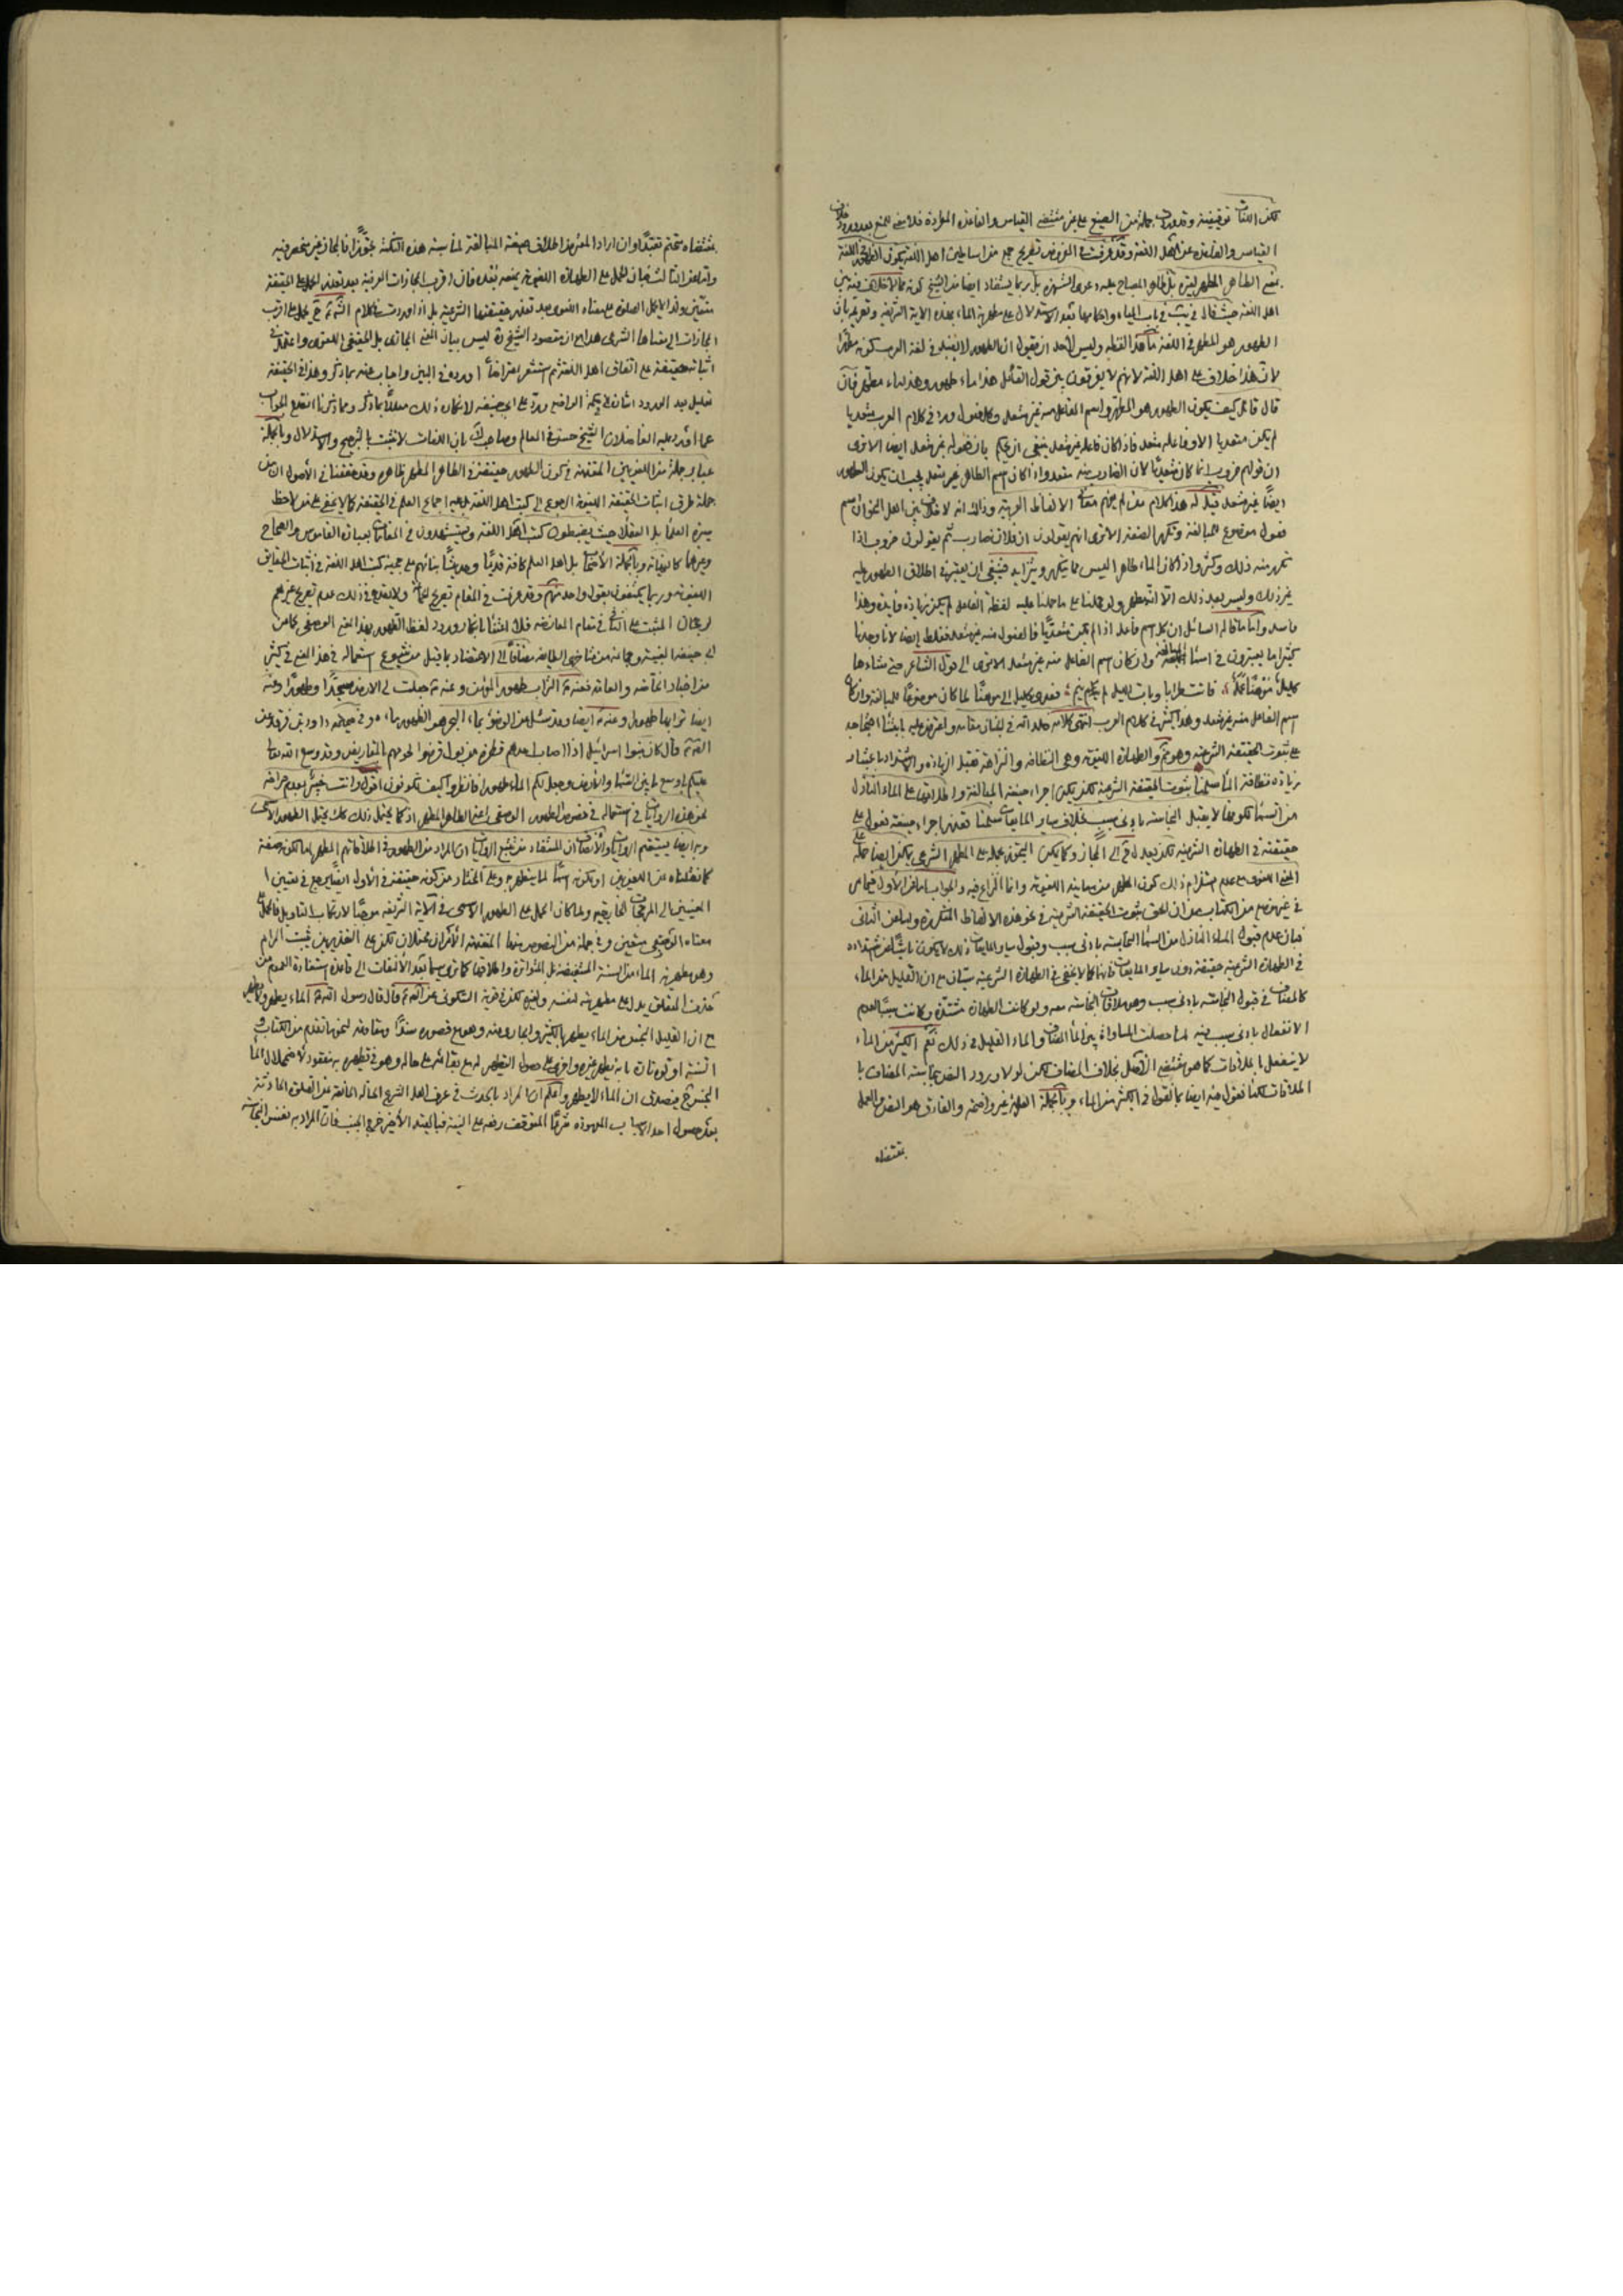 لكن اللغات توقيفية وقد وردت جملة من الصيغ على غير مقتضى القياس والقاعدة المطردة فلا معنى للمنع بعد ورود خلاف
القياس والقاعدة عن اهل اللغة وقد عرفت في العرض تصريح جمع من اساطين اهل اللغة بكون الطهور في اللغة
بمعنى الطاهر المطهر لغيره بل ظاهر المصباح عليه دعوى الشهرة بل ربما يستفاد ايضا من الشيخ كونه مما لا خلاف فيه بين
اهل اللغة حيث قال في يب في باب المياه واحكامها بعد الاستدلال على مطهرية الماء بهذه الاية الشريفة وتقريره بان
الطهور هو المطهر في اللغة ما هذا لفظه وليس لاحد ان يقول ان الطهور لا يفيد في لغة العرب كونه مطهرا
لان هذا خلاف على اهل اللغة لانهم لا يفرقون بين قول القائل هذا ماء طهور وهذا ماء مطهر فان
قال قائل كيف يكون الطهور هو المطهر واسم الفاعل منه غير متعد وكل فعول ورد في كلام العرب متعديا
لم يكن متعديا الا وفاعله متعد فاذا كان فاعله غير متعد ينبغي ان يحكم بان فعوله غير متعد ايضا الا ترى
ان قولهم ضروب انما كان متعديا لان الضارب منه متعد واذا كان اسم الطاهر غير متعد يجب ان يكون الطهور
ايضا غير متعد قيل له هذا كلام من لم يفهم معاني الالفاظ العربية وذلك انه لا خلاف بين اهل النحو ان اسم
فعول موضوع للمبالغة وتكرر الصفة الا ترى انهم يقولون فلان ضارب ثم يقولون ضروب اذا
تكرر منه ذلك وكثر واذا كان الماء طاهرا ليس مما يتكرر ويتزايد فينبغي ان يعتبر في اطلاق الطهور عليه
غير ذلك وليس بعد ذلك الا انه مطهر ولو حملناه على ما حملنا عليه لفظة الفاعل لم يكن فيه زيادة فائدة وهذا
فاسد واما ما قاله السائل ان كل اسم فاعل اذا لم يكن متعديا فالفعول منه غير متعد فغلط ايضا لانا وجدنا
كثيرا ما يعتبرون في اسماء المبالغة التعدية وان كان اسم الفاعل منه غير متعد الا ترى الى قول الشاعر حتى شاءها
كليل موهنا عمل فباتت طرابا وبات الليل لم ينم فعدى كليل الى موهنا لما كان موضوعا للمبالغة وان كان
اسم الفاعل منه غير متعد وهذا كثير في كلام العرب انتهى كلامه
على ثبوت الحقيقة الشرعية وهو مم والطهارة اللغوية وهي النظافة والنزاهة تقبل الزيادة والاشتداد باعتبار
زيادة نظافة الماء سلمنا ثبوت الحقيقة الشرعية لكن يكفي اجراء صيغة المبالغة واطلاقها على الماء النازل
من السماء لكونه مما لا يقبل النجاسة بادنى سبب بخلاف ساير المايعات سلمنا تعذر اجراء صيغة فعول على
حقيقته في الطهارة الشرعية لكن يعدل ح الى المجاز وكما يمكن التجوز بحمله على المطهر الشرعي يمكن ايضا حمله على
المعنى اللغوي على عدم استلزام ذلك كون
في غير موضع من الكتاب من ان الحق ثبوت الحقيقة الشرعية في نحو هذه الالفاظ المتكررة وما عن الثاني
فبان عدم قبول الماء النازل من السماء النجاسة بادنى سبب وقبول ساير المايعات ذلك لا يكون ناشئا من اشتداده
في الطهارة الشرعية حقيقة دون ساير المايعات فانها كما لا يخفى في الطهارة الشرعية سيان مع ان القليل من الماء
كالمضاف في قبول النجاسة بادنى سبب وهو ملاقات النجاسة معه ولو كانت الطهارة مشتدة وكانت سببا لعدم
الانفعال بادنى سبب منه لما حصلت المساواة بين الماء المضاف والماء القليل في ذلك نعم الكثير من الماء
لا ينفعل بالملاقات كما هو مقتضى الاصل بخلاف المضاف لكن لولا ورود النص بنجاسة المضاف با
لملاقات لكنا نقول فيه ايضا بما نقول في الكثير من الماء وبالجملة العلة غير واضحة والفارق هو النص والعمل
بمقتضاه
بمقتضاه متحتم تعبدا وان اراد المعترض اطلاق صيغة المبالغة لمناسبة هذه النكتة تجوزا فالمجاز غير منحصر فيه
واما عن الثالث فبان الحمل على الطهارة اللغوية يمنعه بعده فان اقرب المجازات العرفية بعد تعذر الحمل على الحقيقة
متعين ولذا لا يحمل الصلوة على معناه اللغوي بعد تعذر حقيقتها الشرعية بل اذا وردت في كلام الش ح يحمل على اقرب
المجازات الى معناها الشرعي هذا مع ان مقصود الشيخ ره ليس بيان المعنى المجازي بل الحقيقي اللغوي واعتمد في
اثباته حقيقة على اتفاق اهل اللغة ثم استشعر اعتراضا اورده في البين واجاب عنه بما ذكر وهذا في الحقيقة
تعليل بعد الورود
عما اورد عليه الفاضلان الشيخ حسن في المعالم وصاحب ك بان اللغات لا تثبت بالترجيح والاستدلال وبالجملة
عباير جملة من اللغويين المتقدمة في كون الطهور حقيقة في الطاهر المطهر ظاهرة وقد حققنا في الاصول ان من
جملة طرق اثبات الحقيقة اللغوية الرجوع الى كتب اهل اللغة وعليه اجماع العلم في الحقيقة كما لا يخفى على من لاحظ
سيرة العلماء بل العقلاء حيث يضبطون كتب اهل اللغة ويستشهدون في المقامات بعبارة القاموس والصحاح
وغيرهما كالنهاية وبالجملة الانصاف بل اهل العلم كافة قديما وحديثا بناؤهم على حجية كتب اهل اللغة في اثبات الحقايق
اللغوية وربما يكتفون بقول واحد منهم وقد عرفت في المقام تصريح جماعة ولا يقدح في ذلك عدم تصريح غيرهم
لرجحان المثبت على النافي في مقام المعارضة فلا اعتناء بانكار ورود لفظ الطهور بهذا المعنى الوصفي كما عن
ابي حنيفة لبعده وجماعة من متاخري الطايفة مضافا الى الاعتضاد بما قيل من شيوع استعماله في هذا المعنى في كثير
من اخبار الخاصة والعامة فعنه ص التراب طهور المؤمن وعنه ص جعلت لي الارض مسجدا وطهورا وعنه
ايضا ترابها طهور وعنه ص ايضا وقد سئل عن الوضوء بماء البحر هو الطهور ماءه وفي صحيحة داود بن فرقد عن
الص ع قال كان بنوا اسرائيل اذا اصاب احدهم قطرة من بول قرضوا لحومهم بالمقاريض وقد وسع الله تعالى
عليكم باوسع ما بين السماء والارض وجعل لكم الماء طهورا فانظروا كيف تكونون اقول وانت خبير بعدم صراحة
نحو هذه الروايات في استعماله في خصوص الطهور الوصفي اعني الطاهر المطهر اذ كما يحتمل ذلك كك يحتمل الطهور الاسمي
وبه ايضا يستقيم الروايات والانصاف ان المستفاد من تتبع الروايات ان المراد من الطهور في اطلاقاتهم المطهر اما لكونه صفة
كما نقلناه من اللغويين او بكونه اسما لما يتطهر به وعلى المختار من كونه حقيقة في الاول ايضا يرجع في تعيين ا
لمعنيين الى المرجحات الخارجية ولما كان الحمل على الطهور الاسمي في الاية الشريفة موجبا لارتكاب التاويل فالحمل على
معناه الوصفي متعين وفي جملة من النصوص منها المتقدمة الامران محتملان لكن على التقديرين يثبت المرام
وهو مطهرية الماء من السنة المستفيضة بل المتواترة واطلاقها كما ترى سيما بعد الالتفات الى قاعدة استفادة العموم من
حذف المتعلق يدل على مطهريته لنفسه ولغيره لكن في قوية السكوني عن الص ع قال قال رسول الله ص الماء يطهر ولا يطهر
مع ان القليل النجس من الماء يطهر بالكثير والجاري منه وهو مع قصوره سندا ومقاومته لنحو ما تقدم من الكتاب و
السنة
النجس ح فيصدق ان الماء لا يطهر واعلم ان المراد بالحدث في عرف اهل الشرع الحالة المانعة من الصلوة الحادثة
بعد حصول احد الاسباب المعهودة شرعا المتوقف رفعه على النية فبالقيد الاخير خرج الخبث فان المراد به نفس النجاسة